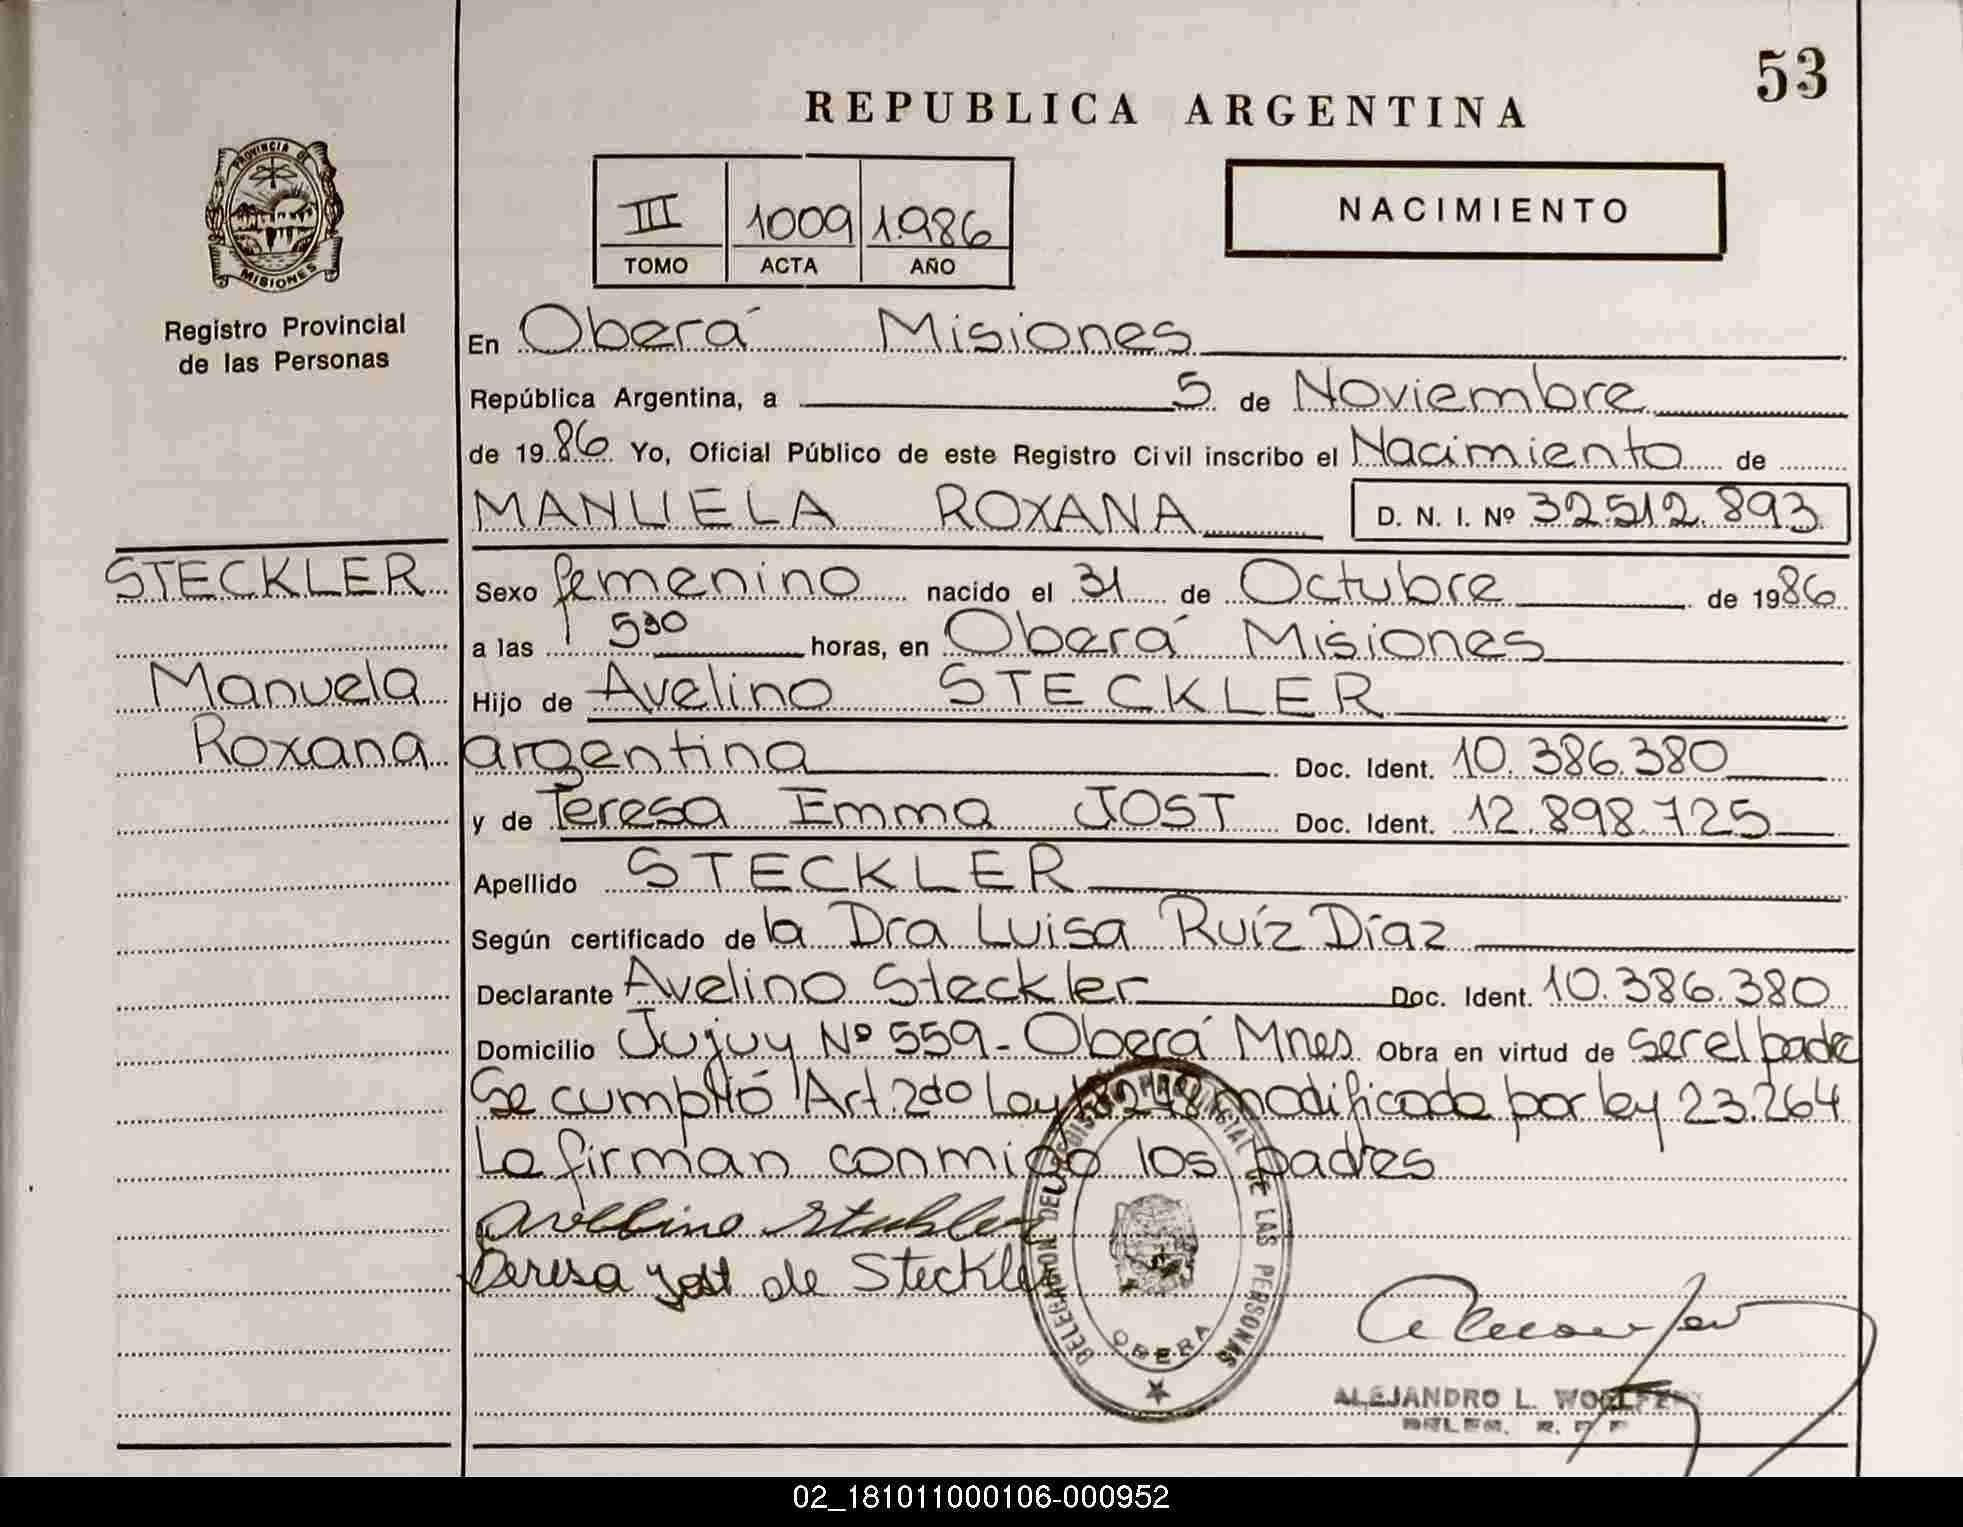 53
REPUBLICA ARGENTINA
PROVINCIA DE
MISIONES
Registro Provincial
de las Personas
III 1009 1.986
TOMO ACTA AÑO
NACIMIENTO
En Oberá Misiones
República Argentina, a 5 de Noviembre
de 1986 Yo, Oficial Público de este Registro Civil inscribo el Nacimiento de
MANUELA ROXANA D. N. I. Nº 32.512.893
STECKLER
Manuela
Roxana
Sexo femenino nacido el 31 de Octubre de 1986
a las 530 horas, en Oberá Misiones
Hijo de Avelino STECKLER
argentina Doc. Ident. 10.386.380
y de Teresa Emma JOST Doc. Ident. 12.898.725
Apellido STECKLER
Según certificado de la Dra Luisa Ruíz Díaz
Declarante Avelino Steckler Doc. Ident. 10.386.380
Domicilio Jujuy Nº 559 - Oberá Mnes. Obra en virtud de ser el padre
Se cumplió Art. 2do Ley 18248 modificada por ley 23.264
Lo firman conmigo los padres
Avellino Steckler
Teresa Jost de Steckler
DELEGACION DEL REGISTRO PROVINCIAL DE LAS PERSONAS
OBERA
ALEJANDRO L.
DELEG. R. P. P.
02_181011000106-000952